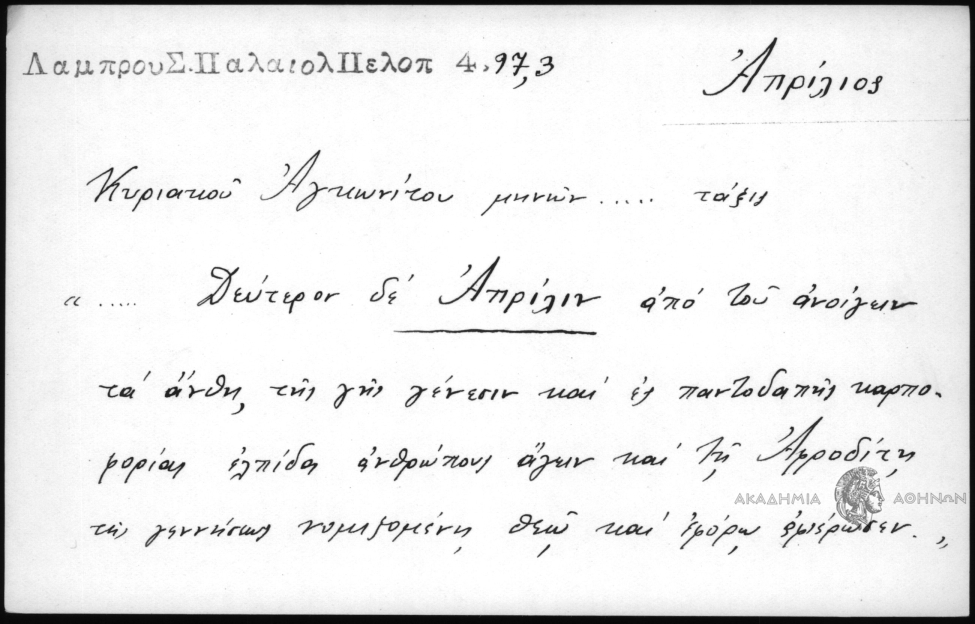 ΛαμπρουΣ.ΠαλαιολΠελοπ 4.97,3
Ἀπρίλιος
Κυριακοῦ Ἀγκωνίτου μηνῶν ..... τάξις
« ..... Δεύτερον δέ Ἀπρίλιν ἀπό τοῦ ἀνοίγειν
τά ἄνθη, τῆς γῆς γένεσιν καί ἐς παντοδαπῆς καρπο-
φορίας ἐλπίδας ἀνθρώπους ἄγειν καί τῇ Ἀφροδίτῃ
τῆς γεννήσεως νομιζομένῃ θεῷ καί ἐφόρῳ ἀφιέρωσεν. »
ΑΚΑΔΗΜΙΑ ΑΘΗΝΩΝ